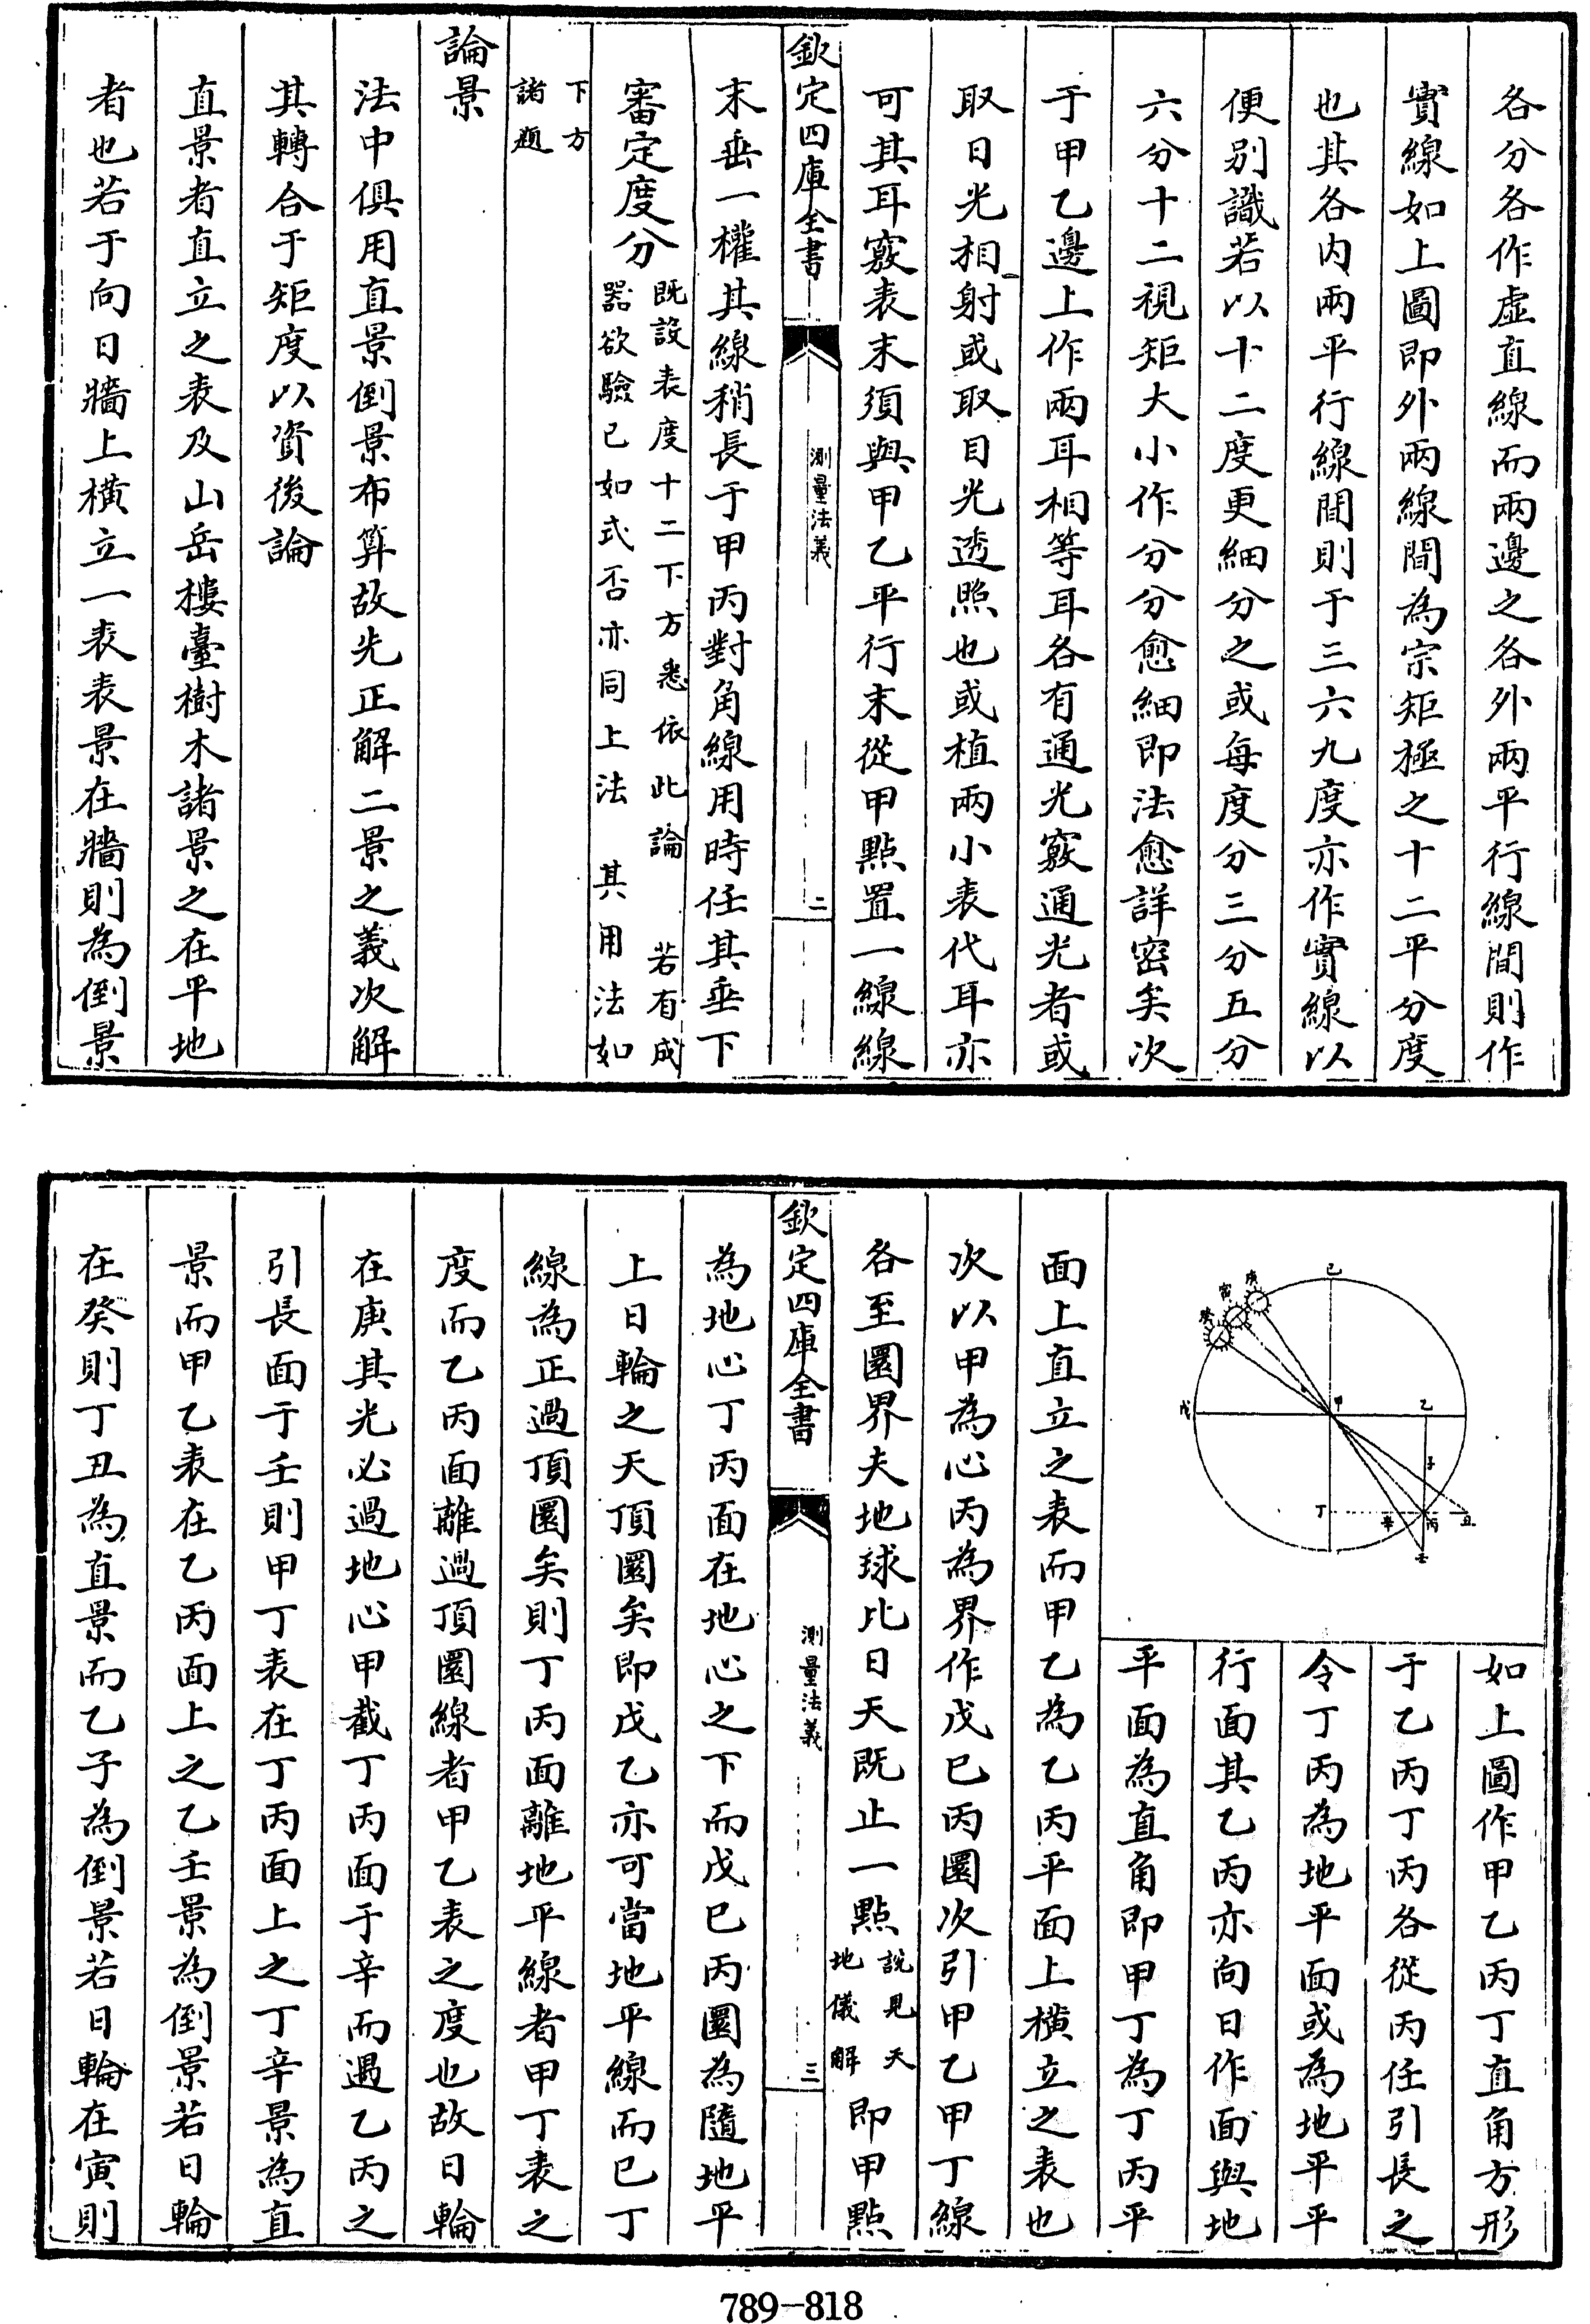 各分各作虛直線而兩邊之各外兩平行線間則作
實線如上圖即外兩線間為宗矩極之十二平分度
也其各内兩平行線間則于三六九度亦作實線以
便別識若以十二度更細分之或每度分三分五分
六分十二視矩大小作分分愈細即法愈詳密矣次
于甲乙邊上作兩耳相等耳各有通光竅通光者或
取日光相射或取目光透照也或植兩小表代耳亦
可其耳竅表末須與甲乙平行末從甲點置一線線
欽定四庫全書
測量法義
二
末垂一權其線稍長于甲丙對角線用時任其垂下
審定度分既設表度十二下方悉依此論 若有成
器欲驗已如式否亦同上法 其用法如
下方
諸題
論景
法中俱用直景倒景布筭故先正解二景之義次解
其轉合于矩度以資後論
直景者直立之表及山岳樓臺樹木諸景之在平地
者也若于向日牆上橫立一表表景在牆則為倒景
己
庚
寅
癸
戊
甲
乙
子
丁
辛
丙
丑
壬
如上圖作甲乙丙丁直角方形
于乙丙丁丙各從丙任引長之
令丁丙為地平面或為地平平
行面其乙丙亦向日作面與地
平面為直角即甲丁為丁丙平
面上直立之表而甲乙為乙丙平面上橫立之表也
次以甲為心丙為界作戊己丙圜次引甲乙甲丁線
各至圜界夫地球比日天既止一點說見天
地儀解即甲點
欽定四庫全書
測量法義
三
為地心丁丙面在地心之下而戊己丙圜為隨地平
上日輪之天頂圜矣即戊乙亦可當地平線而己丁
線為正過頂圜矣則丁丙面離地平線者甲丁表之
度而乙丙面離過頂圜線者甲乙表之度也故日輪
在庚其光必過地心甲截丁丙面于辛而遇乙丙之
引長面于壬則甲丁表在丁丙面上之丁辛景為直
景而甲乙表在乙丙面上之乙壬景為倒景若日輪
在癸則丁丑為直景而乙子為倒景若日輪在寅則
789-818